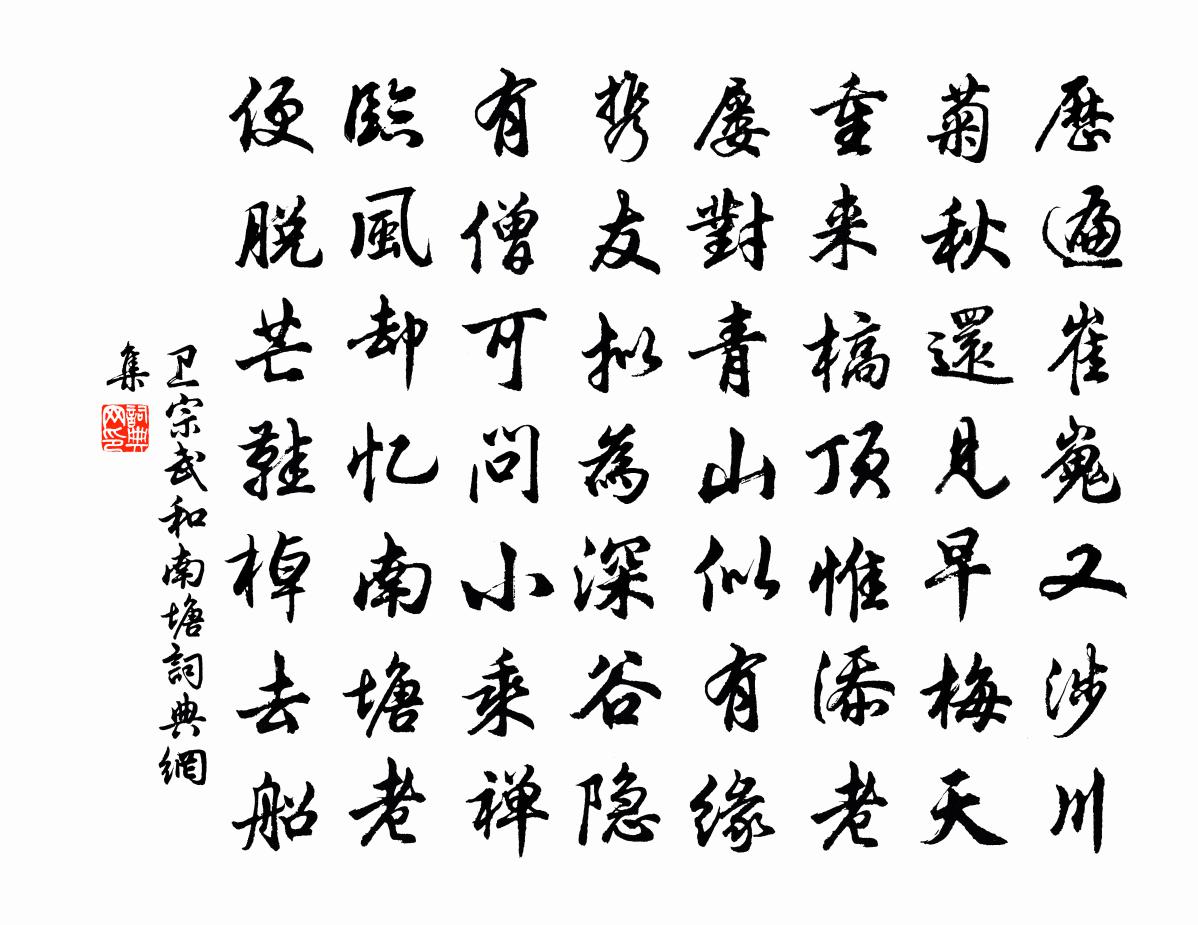 歷遍崔嵬又涉川
菊秋還見早梅天
重来槁顶惟添老
屡對青山似有緣
携友拟為深谷隐
有僧可問小乘禅
臨風却忆南塘老
便脱芒鞋棹去船
卫宗武和南塘詞典網
集
詞典网印